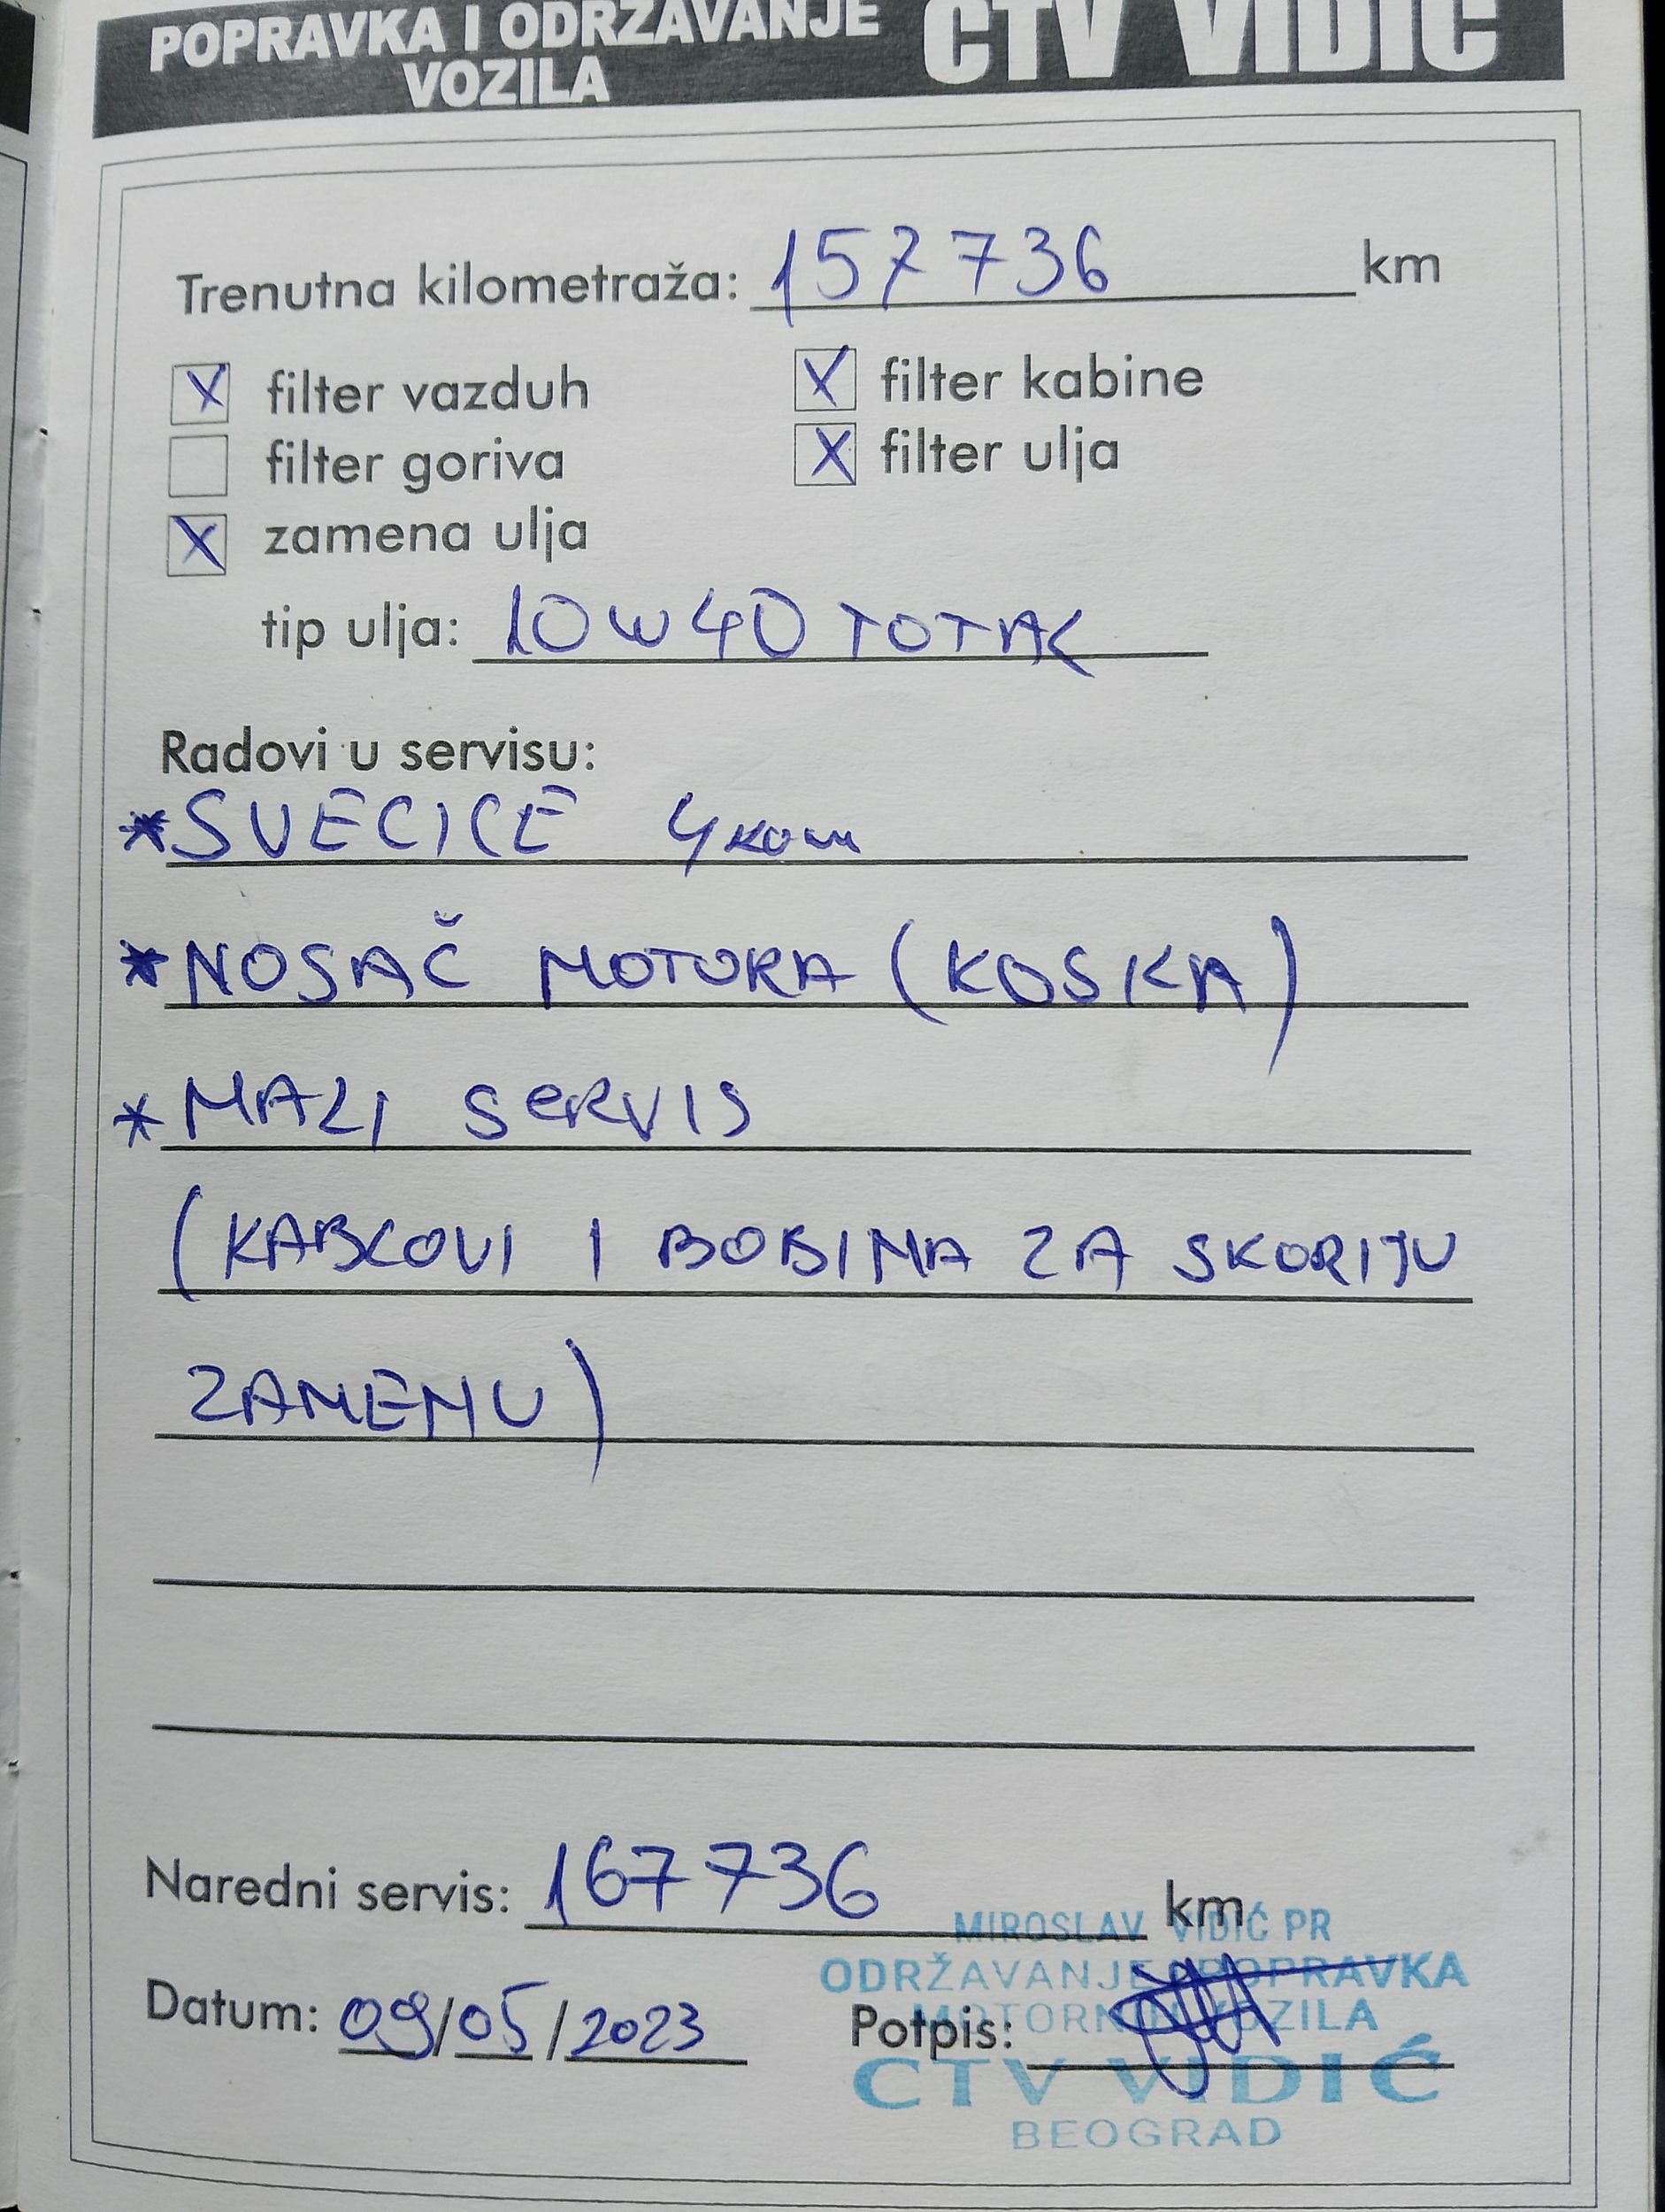 POPRAVKA I ODRŽAVANJE CTV VIDIĆ
VOZILA
Trenutna kilometraža: 157736 km
X filter vazduh X filter kabine
filter goriva X filter ulja
X zamena ulja
tip ulja: 10W40 TOTAL
Radovi u servisu:
*SVEĆICE 4 kom
*NOSAČ MOTORA (KOSKA)
*MALI SERVIS
(KABLOVI I BOBINA ZA SKORIJU
ZAMENU)
Naredni servis: 167736 km
MIROSLAV VIDIĆ PR
ODRŽAVANJE I POPRAVKA
MOTORNIH VOZILA
Datum: 09/05/2023 Potpis:
CTV VIDIĆ
BEOGRAD